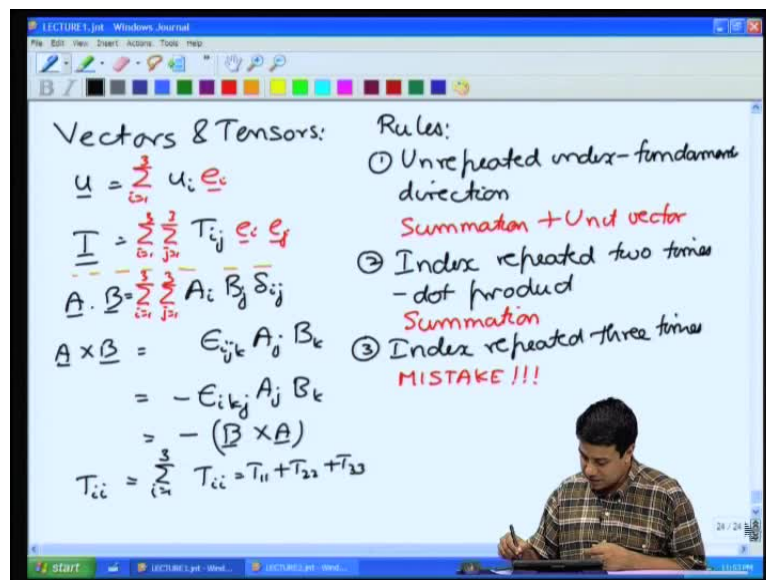 LECTURE1.jnt - Windows Journal
File Edit View Insert Actions Tools Help
B I
Vectors & Tensors:
u = 3 Σ i=1 u_i e_i
T = 3 Σ i=1 3 Σ j=1 T_ij e_i e_j
A . B = 3 Σ i=1 3 Σ j=1 A_i B_j δ_ij
A × B = ϵ_ijk A_j B_k
= - ϵ_ikj A_j B_k
= - (B × A)
T_ii = 3 Σ i=1 T_ii = T_11 + T_22 + T_33
Rules:
① Unrepeated index - fundament
direction
Summation + Unit vector
② Index repeated two times
- dot product
Summation
③ Index repeated three times
MISTAKE!!!
24 / 24
start
LECTURE1.jnt - Wind...
LECTURE2.jnt - Wind...
11:53 PM